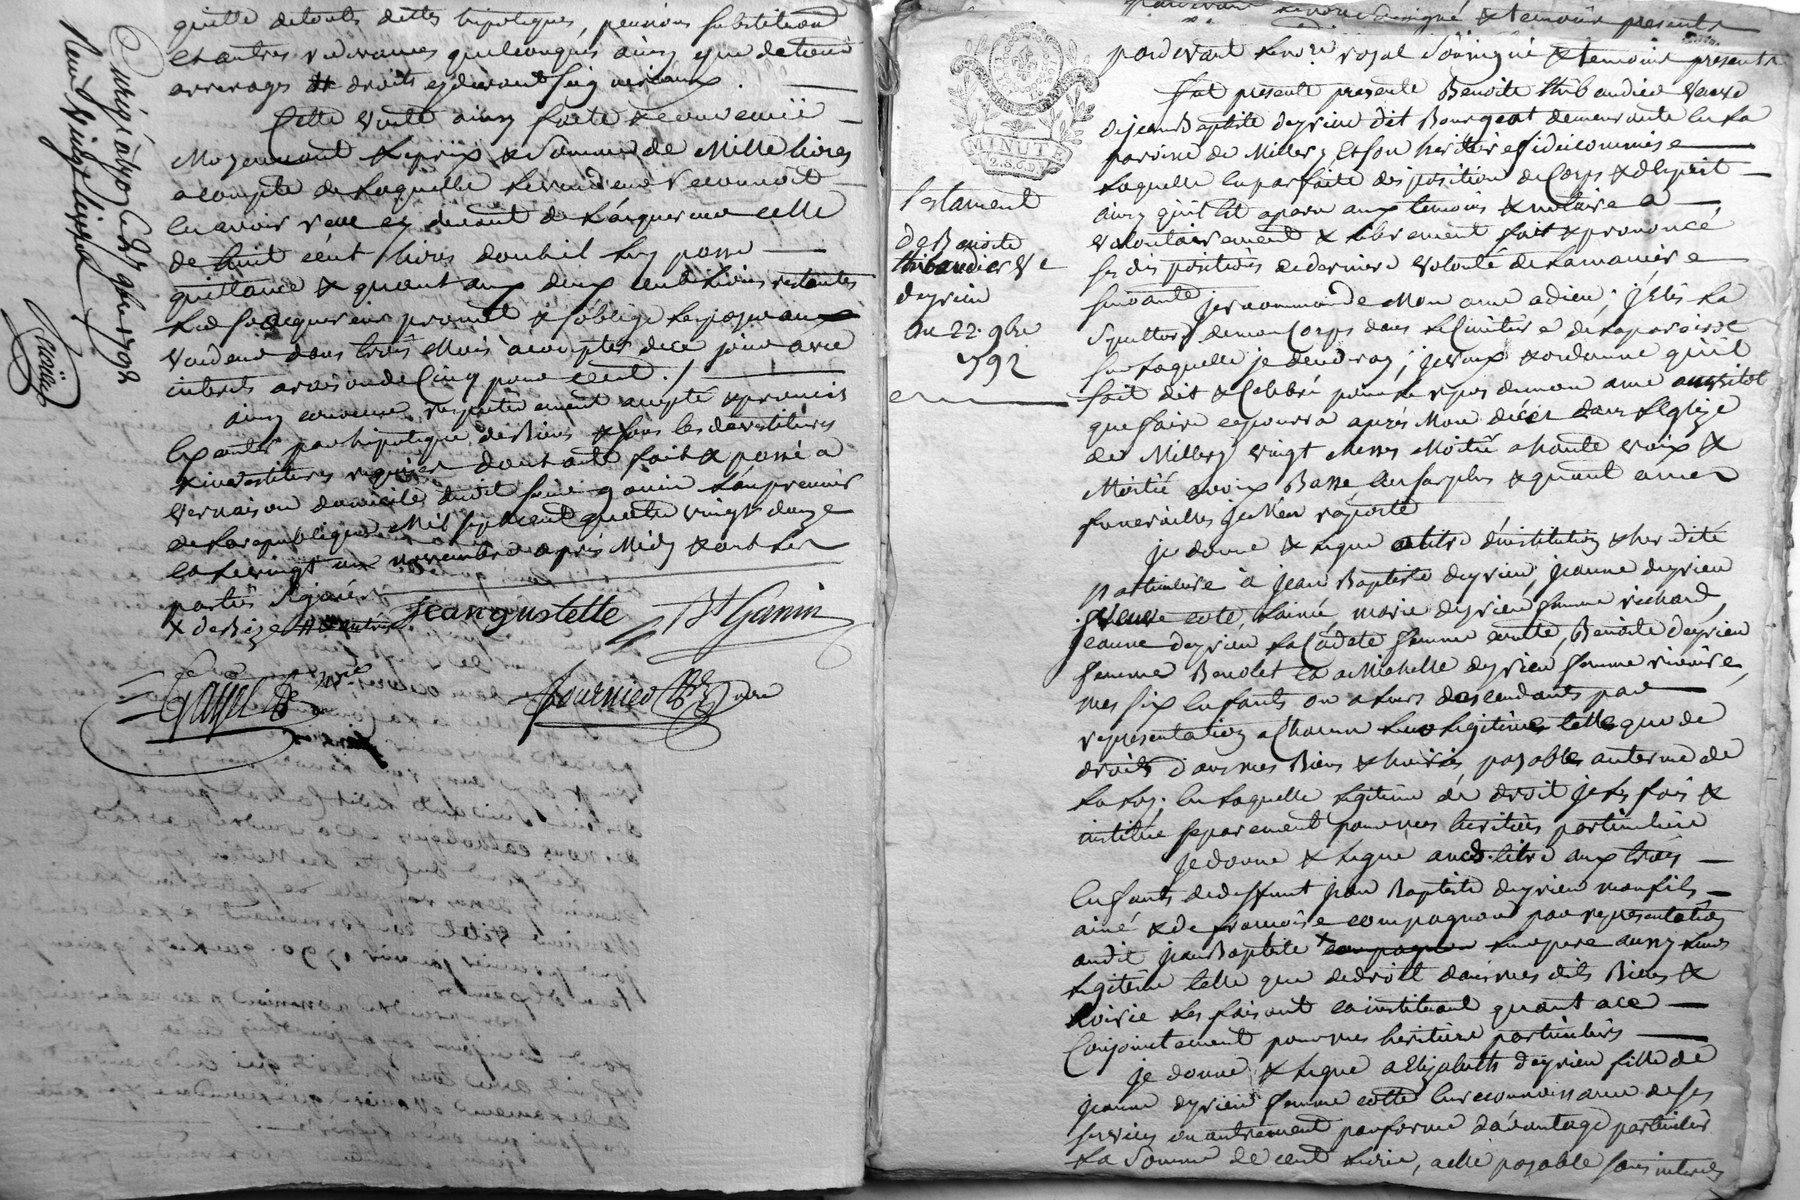 quitte de touts dettes hipoteques, pensions substitutions
et autres redevances quelconques ainsy que de tous
arrerages & droits
Cette vente ainsy faite & convenue
Moyennant le prix & Somme de Mille livres
acompte de laquelle le vendeur reconnoit
avoir reçu cy devant de l'acquereur celle
de huit cent livres dont il luy passe
quittance & quant aux deux cent livres restantes
led. sr acquereur promet & s'oblige les payer aux
vendeur dans trois Mois à compter de ce jour avec
interets a raison de Cinq pour cent ./.
ainsy convenu respectivement accepté & promis
executer par hipoteque de Biens & sous les devestitures
& investitures requises dont acte fait & passé a
vernaison domicile dudit sieur ganin l'an premier
de la republique Mil sept cent quatre vingt douze
le vingt un novembre après Midy & ont les
parties signé
jean gustelle
Bt Ganin
fournier
enrigé a lyon le 9bre 1792
Reçu vingt
par devant le notaire soussigné & temoins presents
par devant le nore royal Soussigné & temoins presents
MINUTE
2.S.6D.
Testament
de Benoite
thibaudier Ve
deyrieu
du 22 9bre
1792
fut presente Benoite thibaudier veuve
de jean Baptiste deyrieu dit Bourgeat demeurante en la
paroisse de Millery et son heritiere fideicommise
Laquelle en parfaite disposition de Corps & d'esprit
ainsy qu'il est aparu aux temoins & notaire a
volontairement & librement fait & prononcé
ses dispositions de derniere volonté de la maniere
suivante je recommande Mon ame a dieu; j'elis la
Sepulture de mon Corps dans le Cimetiere de la paroisse
sur laquelle je decederay; je veux & ordonne qu'il
soit dit & Celebré pour le repos de mon ame aussitot
que faire ce pourra après Mon décès dans l'Eglise
de Millery vingt Messes Moitié a haute voix &
Moitié a voix Basse en surplus & quant a mes
funerailles je M'en raporte
je donne & legue a titre d'institution & heredité
particuliere à jean Baptiste deyrieu, jeanne deyrieu
veuve cote, l'ainée, marie deyrieu femme richard,
jeanne deyrieu la Cadete femme cotte, Benoite deyrieu
femme Benolet & a Michelle deyrieu femme riviere,
mes six enfants ou a leurs descendants par
representation a Chacun leur legitime telle que de
droit dans mes Biens & hoiries payables au terme de
la Loy; en laquelle legitime de droit je les fais &
institue separement pour mes heritiers particuliers
je donne & legue aud. titre aux trois
Enfants de deffunt jean Baptiste deyrieu mon fils
ainé & de françoise compagnon par representation
dudit jean Baptiste leur pere aussy leur
legitime telle que de droit dans mes dits Biens &
hoirie les faisant & instituant quant a ce
Conjointement pour mes heritiers particuliers
je donne & legue a Elizabeth deyrieu fille de
jeanne deyrieu femme cotte en reconnoissance de ses
services ou autrement par forme d'avantage particulier
La Somme de cent livres, a elle payable sans interets